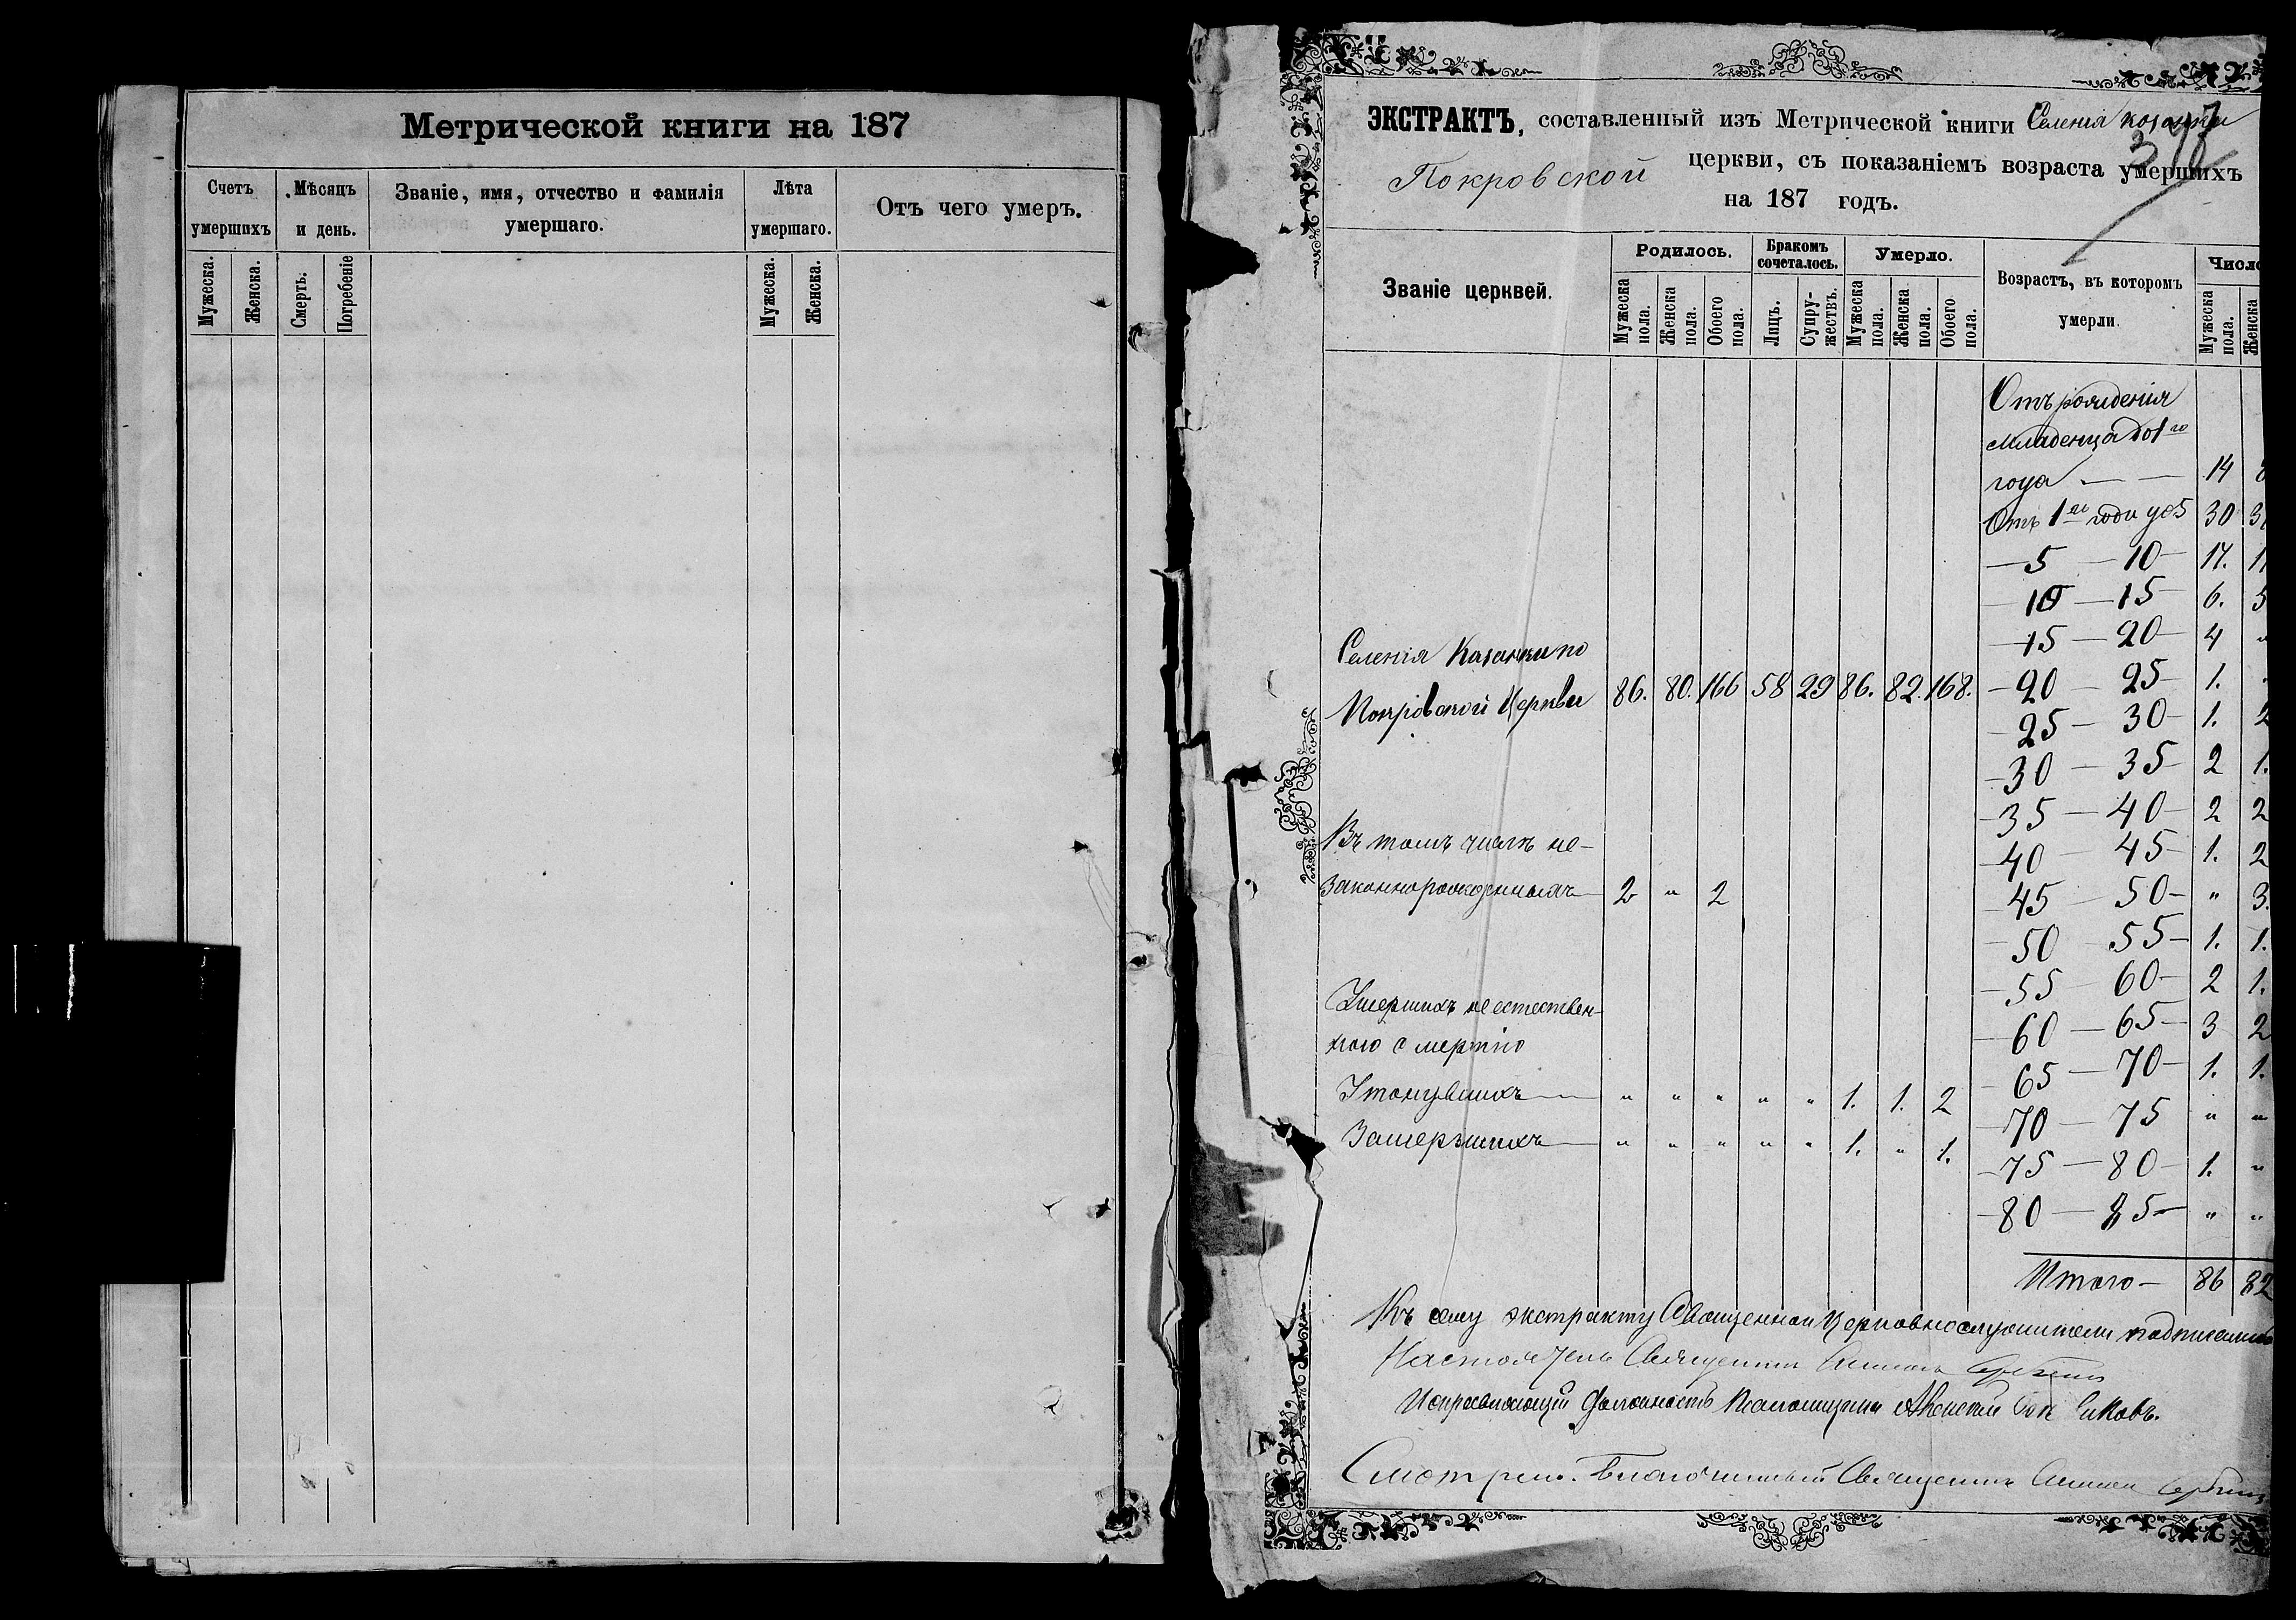 Метрической книги на 187
Счетъ умершихъ
Мѣсяцъ и день.
Званіе, имя, отчество и фамилія
умершаго.
Лѣта умершаго.
Отъ чего умеръ.
Мужеска. Женска. Смерть. Погребеніе Мужеска. Женска.
ЭКСТРАКТЪ, составленный изъ Метрической книги Селенія Казанки
Покровской церкви, съ показаніемъ возраста умершихъ
на 187 годъ.
Званіе церквей.
Родилось.
Бракомъ сочеталось.
Умерло.
Возрастъ, въ которомъ
умерли.
Число
Мужеска пола. Женска пола. Обоего пола. Лицъ. Супружествъ. Мужеска пола. Женска пола. Обоего пола. Мужеска пола. Женска
Отъ рожденія
младенца до 1го
года — — 14
Отъ 1го года до 5 30
— 5 — 10 — 17.
— 10 — 15 — 6. 5
— 15 — 20 — 4 "
— 20 — 25 — 1.
— 25 — 30 — 1. 2
— 30 — 35 — 2 1.
— 35 — 40 — 2 2
— 40 — 45 — 1. 2
— 45 — 50 — " 3.
— 50 — 55 — 1. 1.
— 55 — 60 — 2 1.
— 60 — 65 — 3 2
— 65 — 70 — 1. 1.
— 70 — 75 " "
— 75 — 80 — 1. "
— 80 — 85 — " "
Итого — 86 82
Селенія Казанки по
Покровской Церкви 86. 80. 166 58 29 86. 82. 168.
Въ томъ числѣ не-
законнорожденныхъ 2 " 2
Умершихъ неестествен-
ною смертію
Утонувшихъ — " " " " " 1. 1. 2
Замерзшихъ — " " " " " 1. " 1.
Къ сему экстракту Священно и Церковнослужители подписались
Настоятель Священникъ
Исправляющій должность Псаломщика
Смотрѣлъ. Благочинный Священникъ